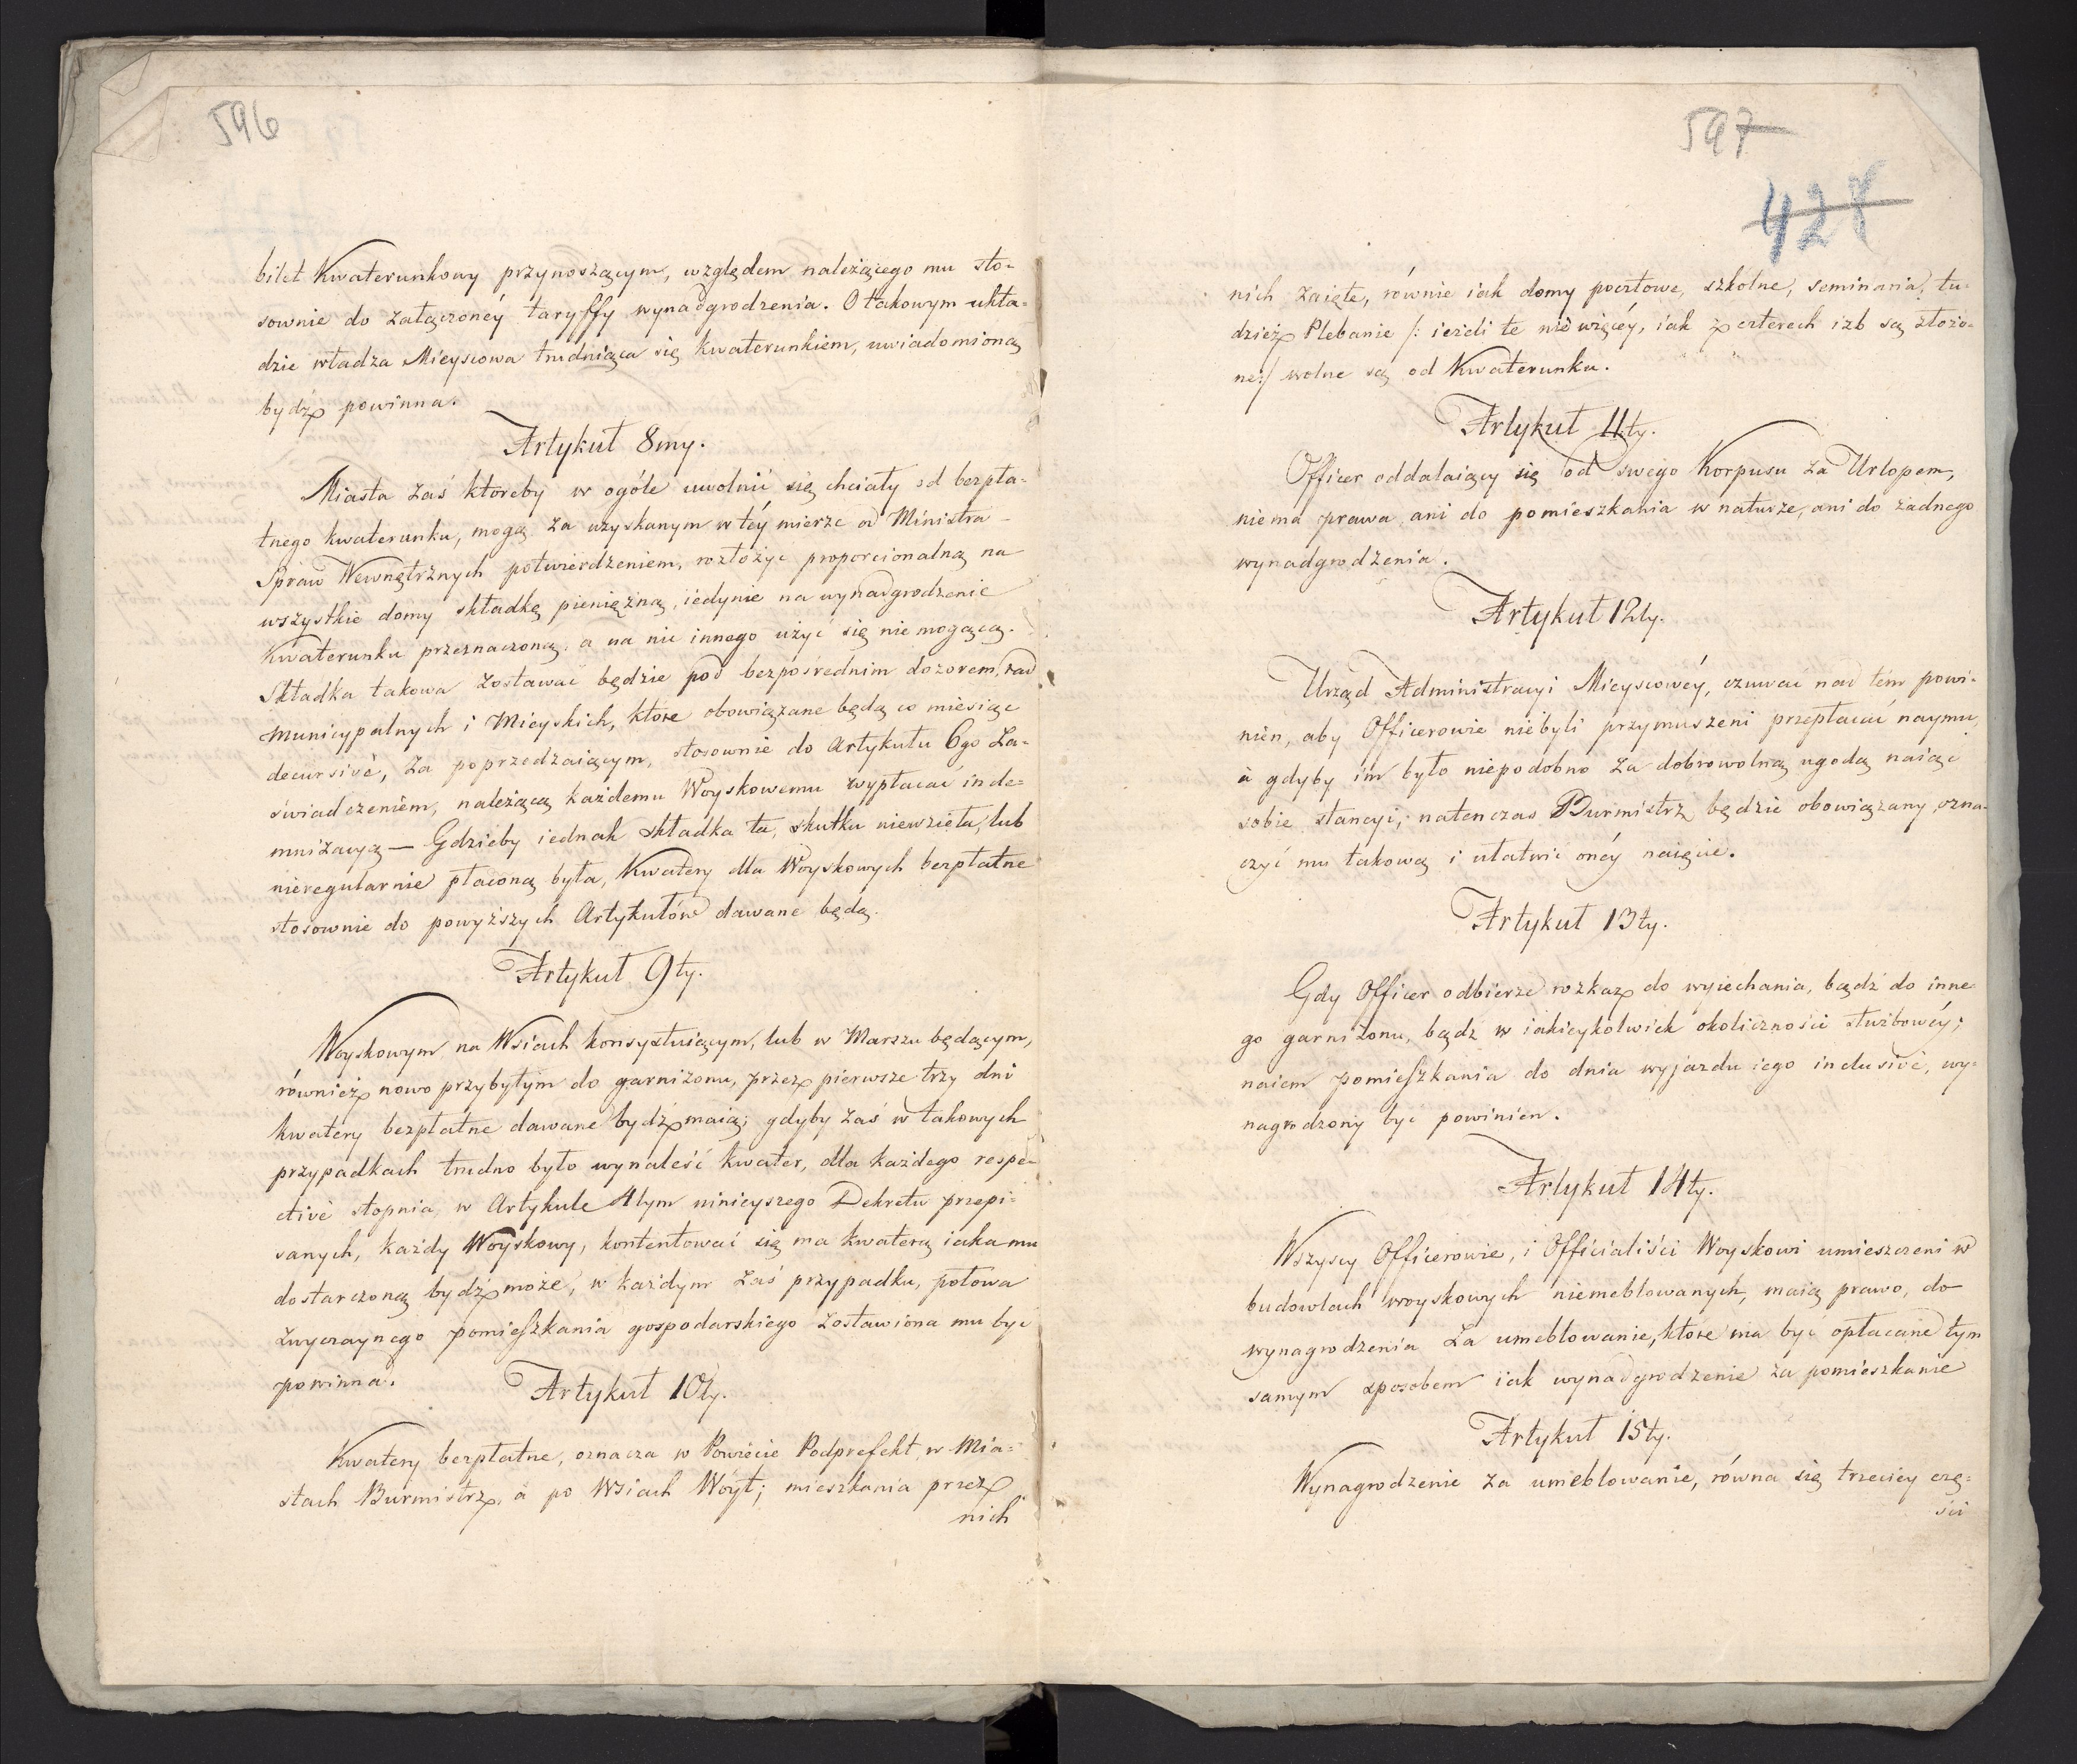 596
bilet Kwaterunkowy przynoszącym, względem należącego mu sto-
sownie do załączonéy taryffy wynadgrodzenia. O takowym ukła-
dzie władza Mieyscowa trudniąca się kwaterunkiem, uwiadomioną
bydź powinna.
Artykuł 8my.
Miasta zaś ktoreby w ogóle uwolnić się chciały od bezpła-
tnego kwaterunku, mogą za uzyskanym w téy mierze od Ministra
Spraw Wewnętrznych potwierdzeniem, rozłożyc proporcionalną na
wszystkie domy składkę pieniężną, iedynie na wynadgrodzenie
Kwaterunku przeznaczoną, a na nic innego użyć się nie mogącą.
Składka takowa zostawać będzie pod bezpośrednim dozorem, rad
Municypalnych i Mieyskich, ktore obowiązane będą co miesiąc
decursivè, za poprzedzaiącym, stosownie do Artykułu 6go Za-
świadczeniem, należącą każdemu Woyskowemu wypłacać inde-
mnizacyą — Gdzieby iednak składka ta, skutku niewzięła, lub
nieregularnie płaconą była, Kwatery dla Woyskowych bezpłatne
stosownie do powyższych Artykułów dawane będą.
Artykuł 9ty.
Woyskowym na Wsiach konsystuiącym, lub w Marszu będącym,
również nowo przybyłym do garnizonu, przez pierwsze trzy dni
kwatery bezpłatne dawane bydź maią; gdyby zaś w takowych
przypadkach trudno było wynaleść kwater, dla każdego respe-
ctivè stopnia, w Artykule 4tym ninieyszego Dekretu przepi-
sanych, każdy Woyskowy, kontentować się ma kwaterą iaka mu
dostarczoną bydź może, w każdym zaś przypadku, połowa
zwyczaynego pomieszkania gospodarskiego zostawiona mu byc
powinna.
Artykuł 10ty.
Kwatery bezpłatne, oznacza w Powiecie Podprefekt, w Mia-
stach Burmistrz, à po Wsiach Wóyt; mieszkania przez
nich
597
427
nich zaięte, równie iak domy pocztowe, szkolne, seminaria, tu-
dzież Plebanie /: ieżeli te nie więcéy, iak z czterech izb są złożo-
ne:/ wolne są od Kwaterunku.
Artykuł 11ty.
Officer oddalaiący się od swego Korpusu za Urlopem,
niema prawa ani do pomieszkania w naturze, ani do żadnego
wynadgrodzenia.
Artykuł 12ty.
Urząd Administracyi Mieyscowéy, czuwać nad tém powi-
nien, aby Officerowie niebyli przymuszeni przepłacać naymu,
à gdyby im było niepodobno za dobrowolną ugodą naiąć
sobie stancyi, natenczas Burmistrz będzie obowiązany, ozna-
czyć mu takową i ułatwić onéy naięcie.
Artykuł 13ty.
Gdy Officer odbierze rozkaz do wyiechania, bądź do inne-
go garnizonu, bądz w iakieykolwiek okoliczności służbowéy;
naiem pomieszkania do dnia wyjazdu iego inclusivè, wy-
nagrodzony byc powinien.
Artykuł 14ty.
Wszyscy Officerowie, i Officialiści Woyskowi umieszczeni w
budowlach woyskowych niemeblowanych, maią prawo, do
wynagrodzenia za umeblowanie, które ma być opłacane tym
samym sposobem iak wynadgrodzenie za pomieszkanie
Artykuł 15ty.
Wynagrodzenie za umeblowanie, równa się trzeciey czę-
ści